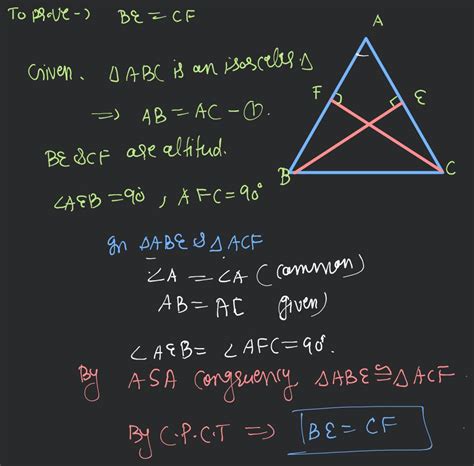 To prove → BE = CF
A
Given. △ABC is an isosceles △
F
E
⇒ AB = AC - ①.
BE & CF are altitud.
B
C
∠AEB = 90°, ∠AFC = 90°
In △ABE & △ACF
∠A = ∠A (common)
AB = AC (given)
∠AEB = ∠AFC = 90°.
By ASA congruency △ABE ≅ △ACF
By C.P.C.T ⇒ BE = CF